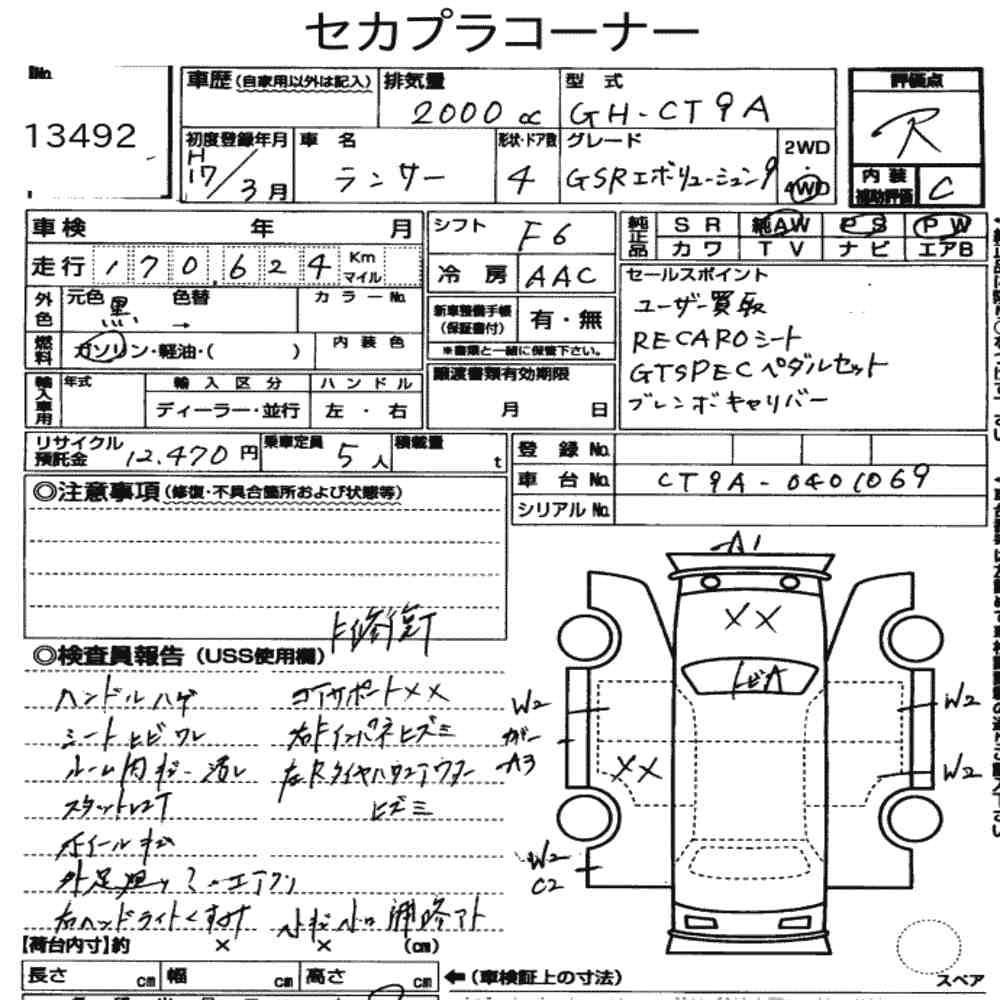 セカプラコーナー
No.
13492
車歴(自家用以外は記入)
排気量
2000 cc
型 式
GH-CT9A
評価点
R
初度登録年月
H
17/3月
車 名
ランサー
形状・ドア数
4
グレード
GSRエボリューション9
2WD
・
4WD
内 装
補助評価
C
車検 年 月
走行 170,624 Km マイル
シフト
F6
冷 房
AAC
純正品
SR 純AW PS PW
カワ TV ナビ エアB
外色
元色 黒 色替 →
カラーNo.
燃料
ガソリン・軽油・( )
内 装 色
新車整備手帳
(保証書付)
有・無
※書類と一緒に保管下さい。
セールスポイント
ユーザー買取
RECAROシート
GTSPECペダルセット
ブレンボキャリパー
輸入車用
年式
輸 入 区 分
ディーラー・並行
ハ ン ド ル
左 ・ 右
譲渡書類有効期限
月 日
リサイクル
預託金
12,470円
乗車定員
5人
積載量
t
登 録 No.
車 台 No.
CT9A-0401069
シリアル No.
◎注意事項(修復・不具合箇所および状態等)
◎検査員報告(USS使用欄)
ハンドルハゲ
コアサポート××
シートヒビワレ
右Fインパネヒズミ
スタットレス4T
ヒズミ
ホイールキズ
右ヘッドライトくすみ
A1
××
トビA
W2
ガリ
A3
××
W2
C2
W2
W2
【荷台内寸】約 × × (cm)
長さ cm 幅 cm 高さ cm
←(車検証上の寸法)
スペア